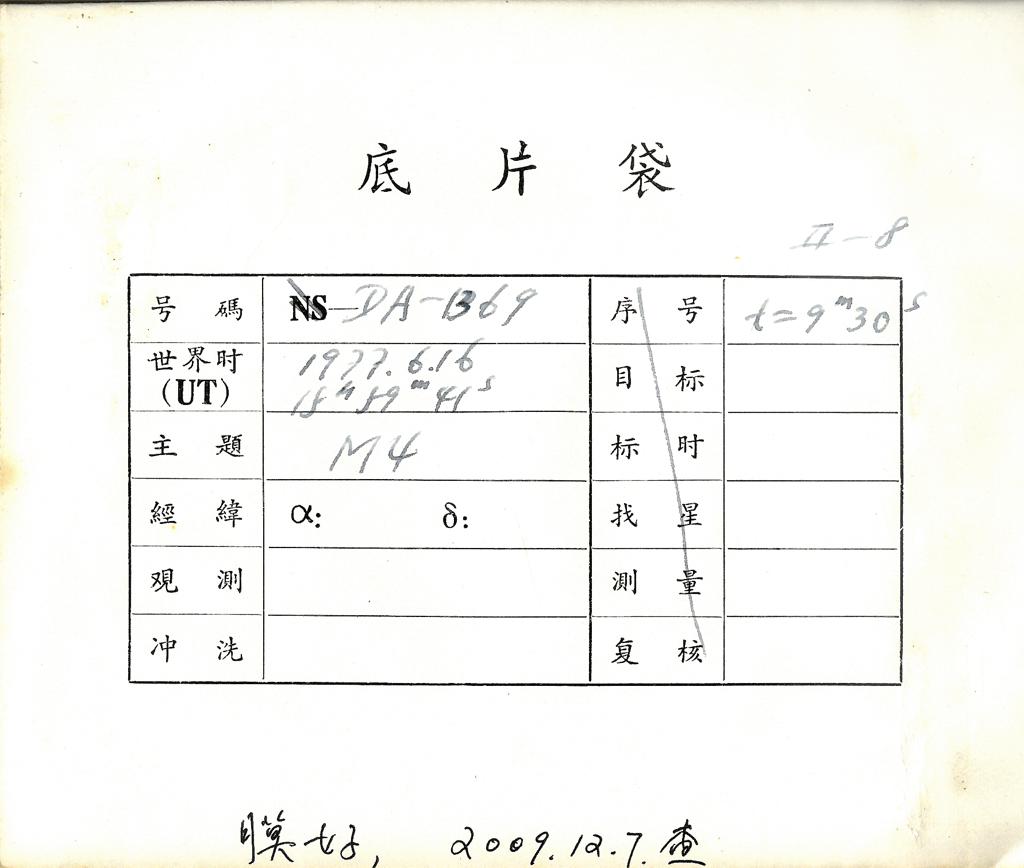 底片袋
II-8
号碼 NS— DA-B69 序号 t=9ᵐ30ˢ
世界时(UT) 1977.6.16 目标
18ʰ59ᵐ41ˢ
主題 M4 标时
經緯 α: δ: 找星
观測 測量
冲洗 复核
膜好, 2009.12.7.查